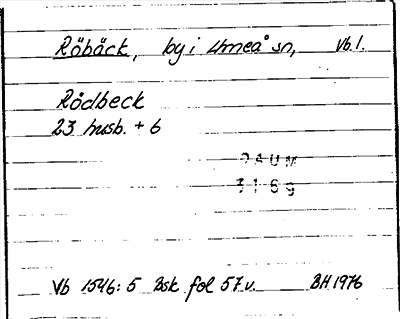 Röbäck, by i Umeå sn, Vb.l.
Rödbeck
23 husb. + 6
DAUM
3169
Vb 1546:5 Bsk fol 57.v. BH 1976